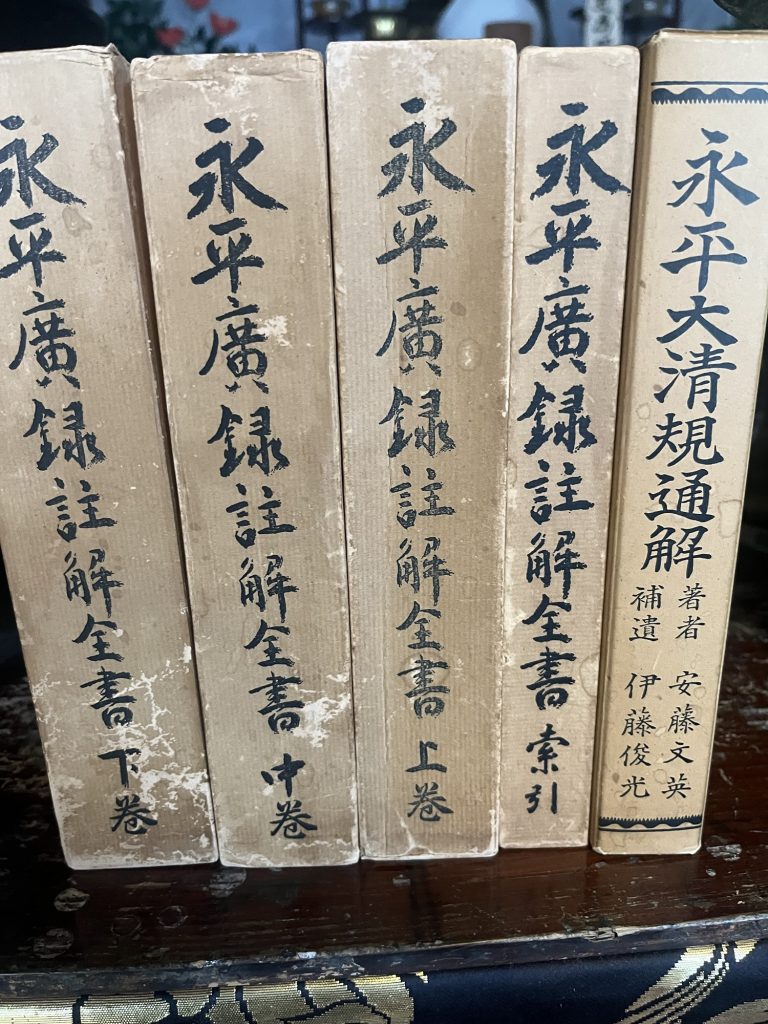 永平大清規通解
著者 安藤文英
補遺 伊藤俊光
永平廣録註解全書 索引
永平廣録註解全書 上巻
永平廣録註解全書 中巻
永平廣録註解全書 下巻